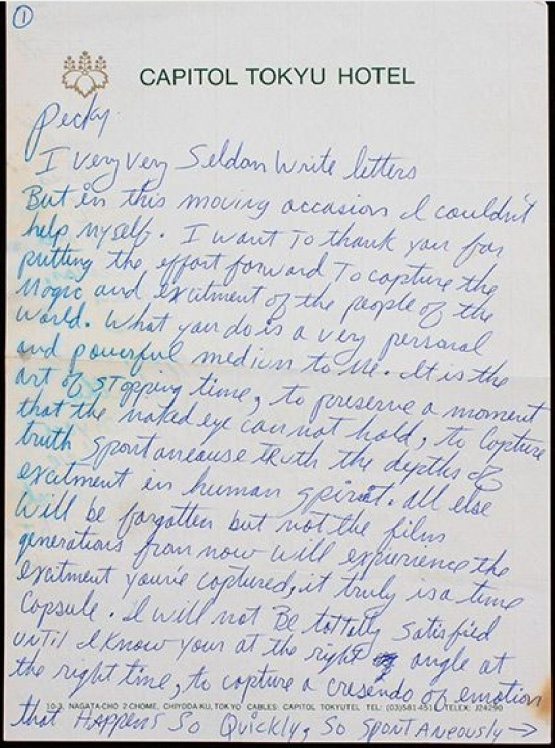 1
CAPITOL TOKYU HOTEL
Pecky
I very very Seldom Write letters
But in this moving occasion I couldn't
help myself. I want To thank you for
putting the effort forward To capture the
Magic and excitment of the people of the
World. What you do is a very personal
and powerful medium to me. It is the
art of sTopping time, to preserve a moment
that the naked eye can not hold, to Capture
truth spontaneouse truth the depths of
excitment in human spirit. all else
Will be forgotten but not the film
generations from now will experience the
excitment you've captured, it truly is a time
Capsule. I will not Be tottally Satisfied
until I know your at the right angle at
the right time, to capture a cresendo of emotion
10-3, NAGATA-CHO 2-CHOME, CHIYODA-KU, TOKYO CABLES: CAPITOL TOKYUTEL TEL: (03)581-4511 TELEX: J24290
that HAppens So Quickly, So SponTAneously →